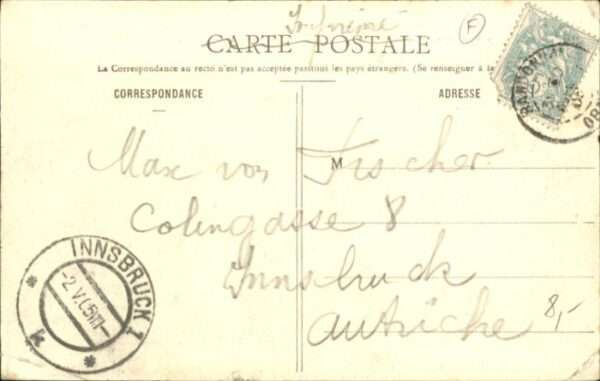 Imprimé
F
CARTE POSTALE
La Correspondance au recto n'est pas acceptée par tous les pays étrangers. (Se renseigner à la
CORRESPONDANCE
ADRESSE
M
Max von Fischer
Colingasse 8
Innsbruck
Autriche
8,-
INNSBRUCK 1
-2.V.05
* k *